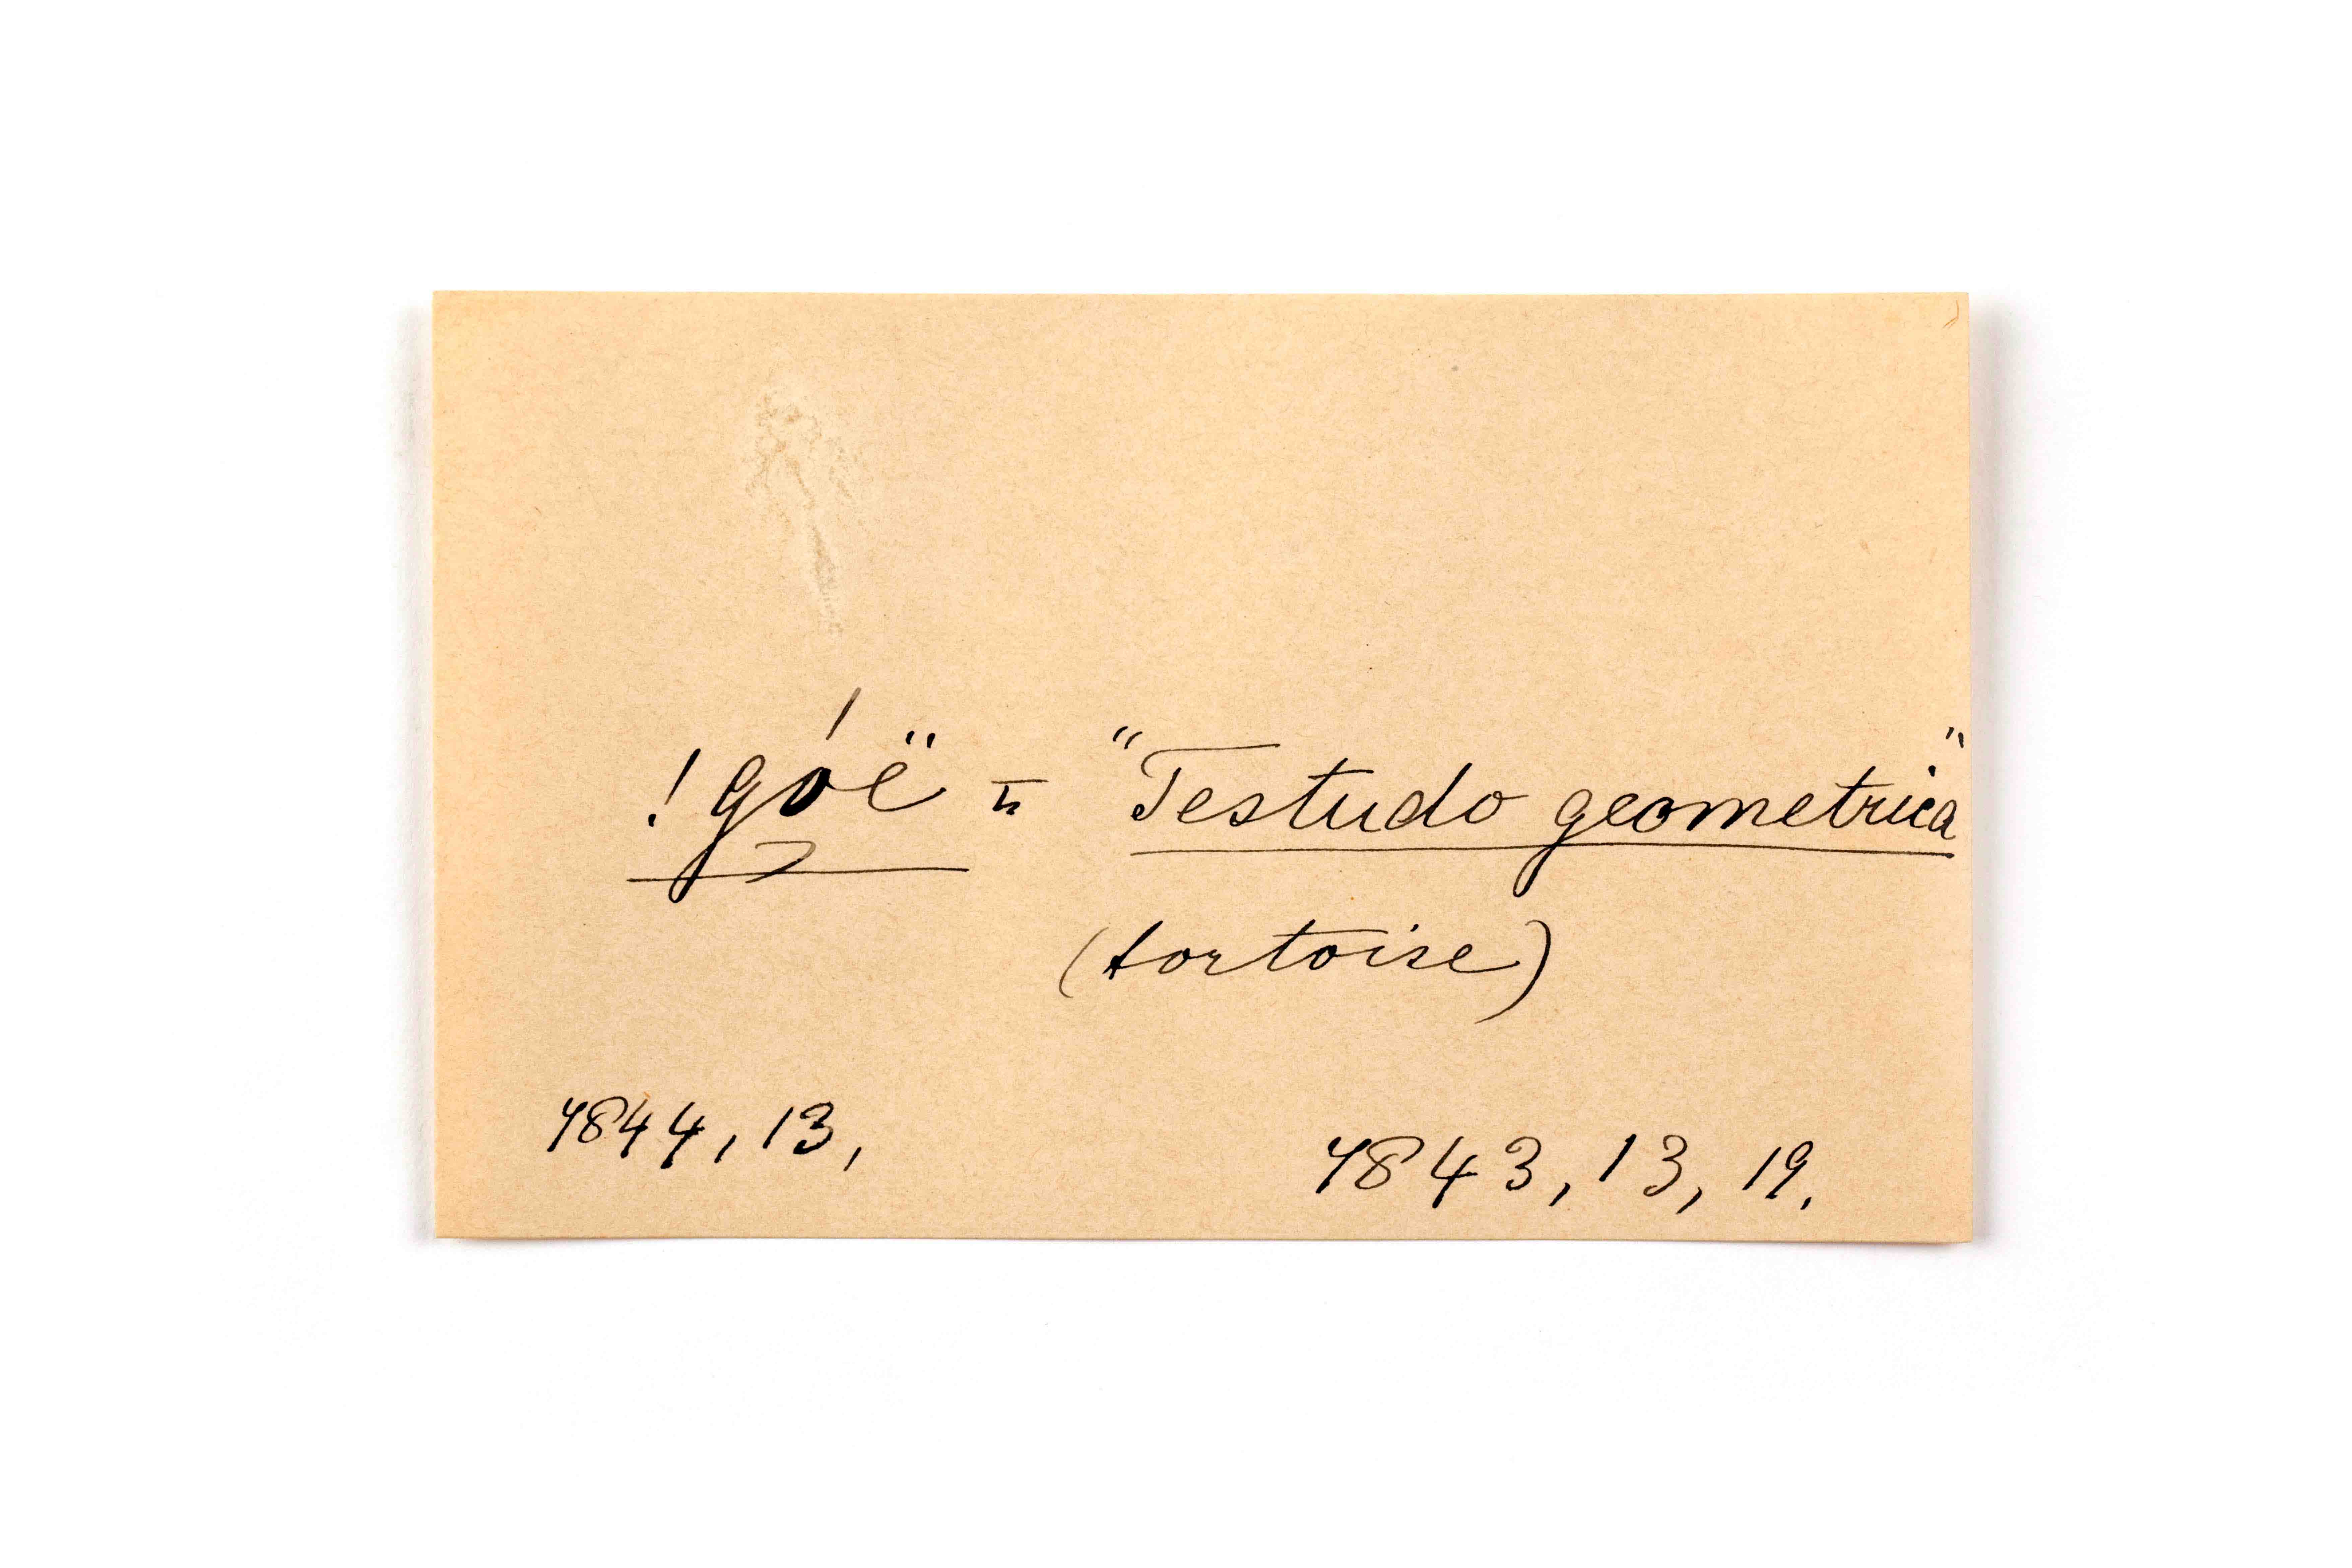 !góë = "Testudo geometrica"
(tortoise)
7844, 13,
7843, 13, 19.